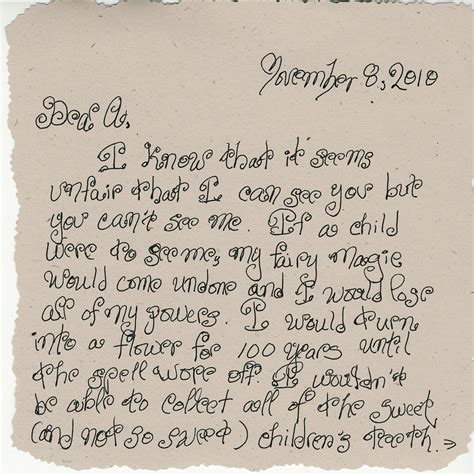 November 8, 2010
Dear A,
I know that it seems
unfair that I can see you but
you can't see me. If a child
were to see me, my fairy magic
would come undone and I would lose
all of my powers. I would turn
into a flower for 100 years until
the spell wore off. I wouldn't
be able to collect all of the sweet
(and not so sweet) children's teeth. →